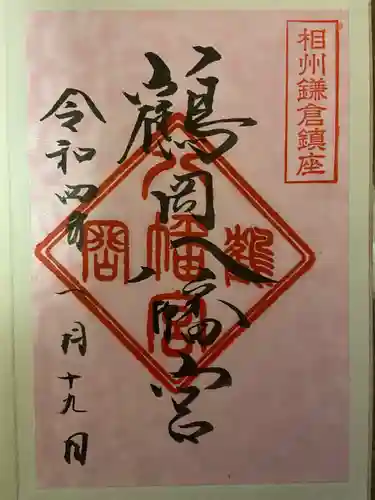 相州鎌倉鎮座
鶴岡八幡宮
令和四年一月十九日
鶴岡八幡宮